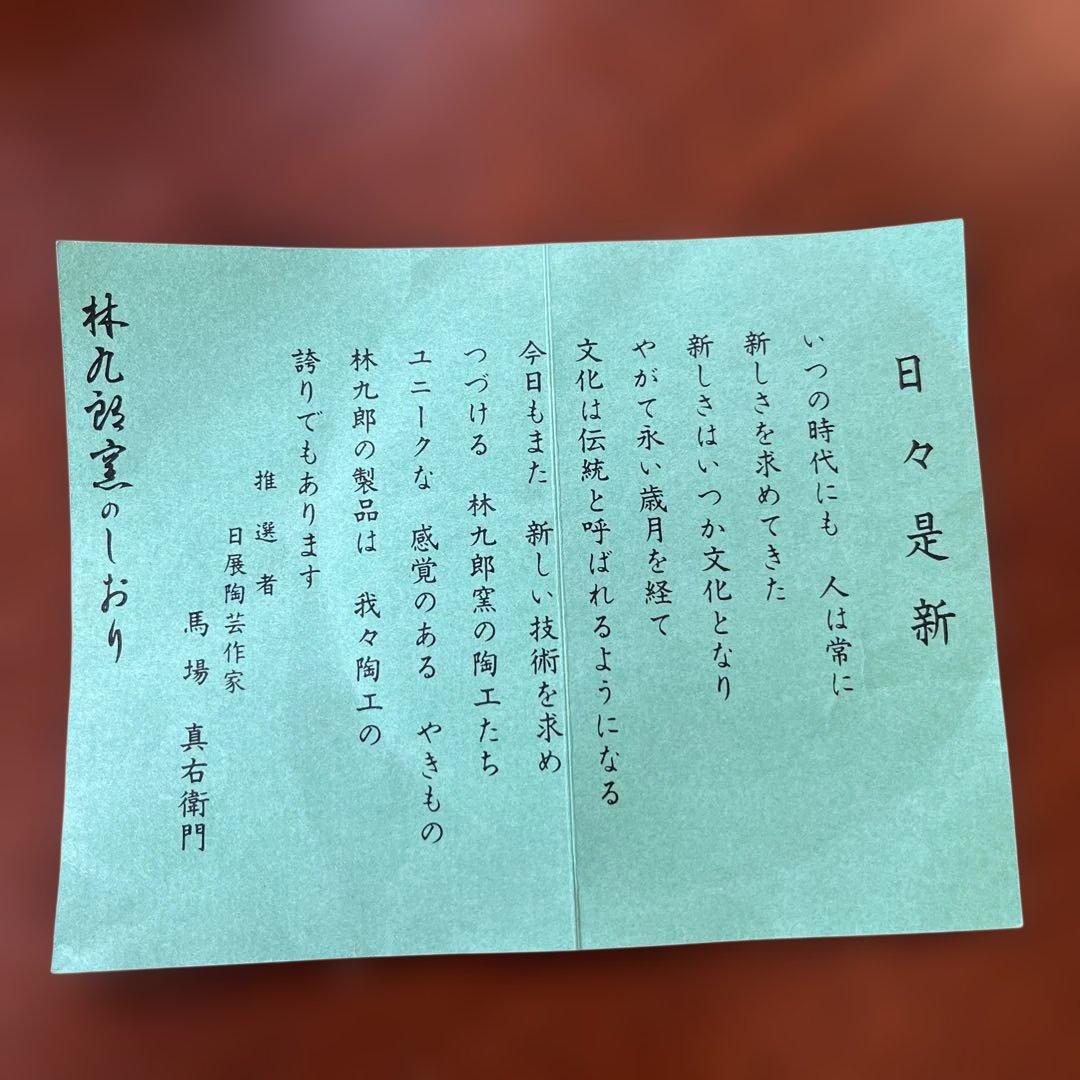 日々是新
いつの時代にも　人は常に
新しさを求めてきた
新しさはいつか文化となり
やがて永い歳月を経て
文化は伝統と呼ばれるようになる
今日もまた　新しい技術を求め
つづける　林九郎窯の陶工たち
ユニークな　感覚のある　やきもの
林九郎の製品は　我々陶工の
誇りでもあります
推選者
日展陶芸作家
馬場　真右衛門
林九郎窯のしおり